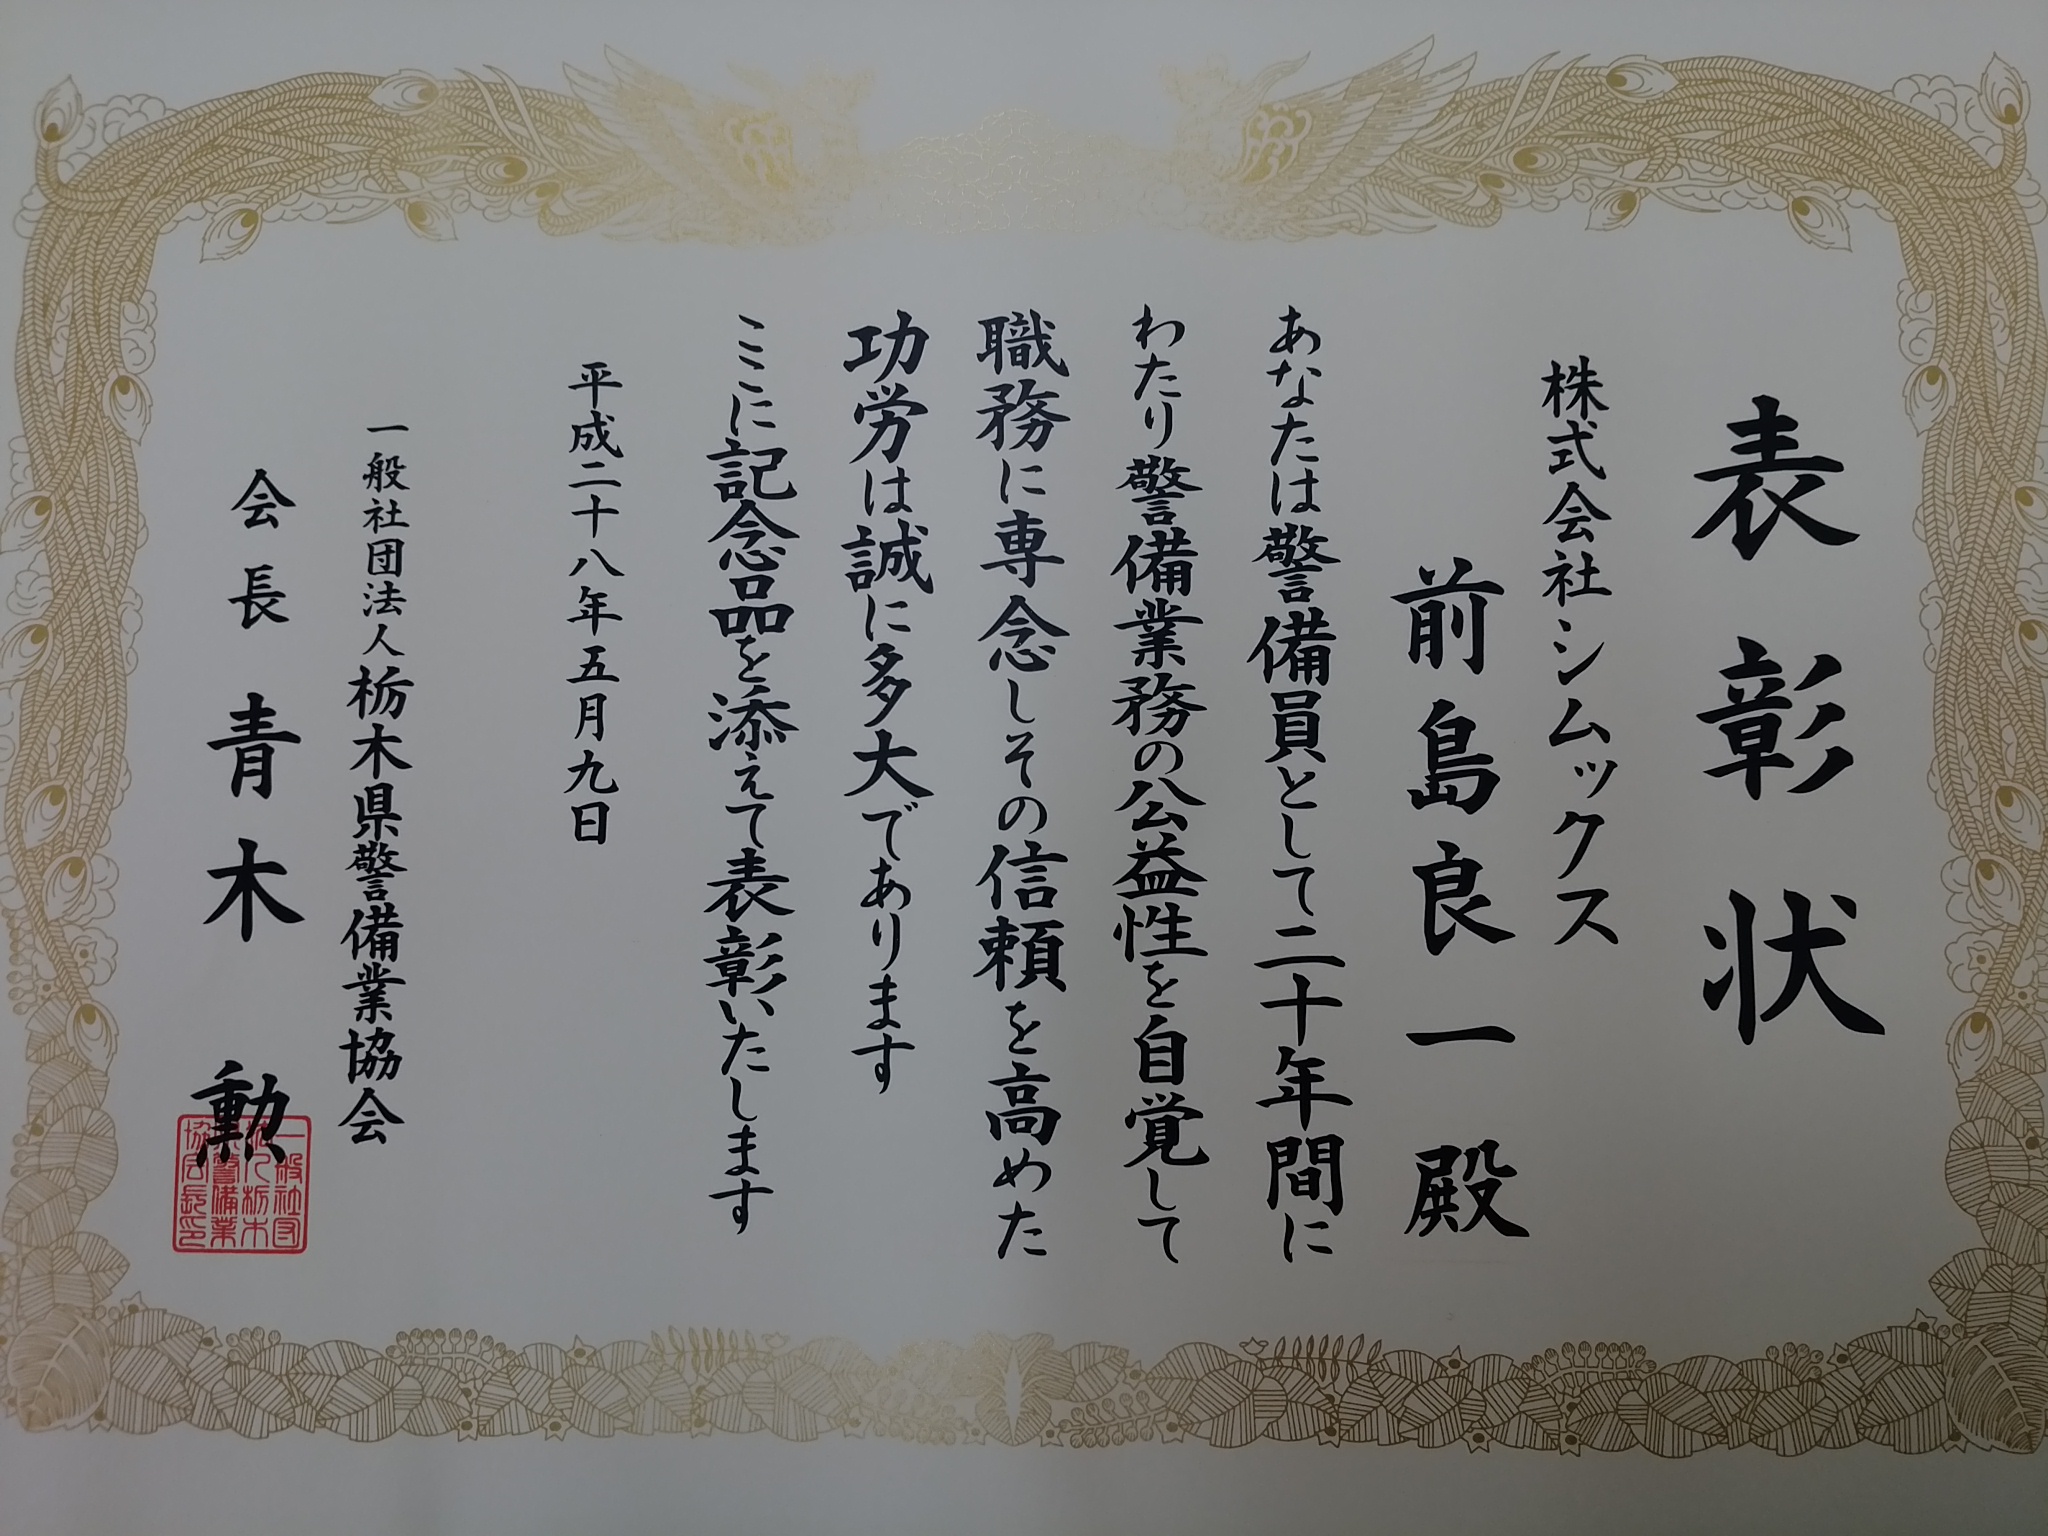 表彰状
株式会社シムックス
前島良一殿
あなたは警備員として二十年間に
わたり警備業務の公益性を自覚して
職務に専念しその信頼を高めた
功労は誠に多大であります
ここに記念品を添えて表彰いたします
平成二十八年五月九日
一般社団法人栃木県警備業協会
会長 青木 勲